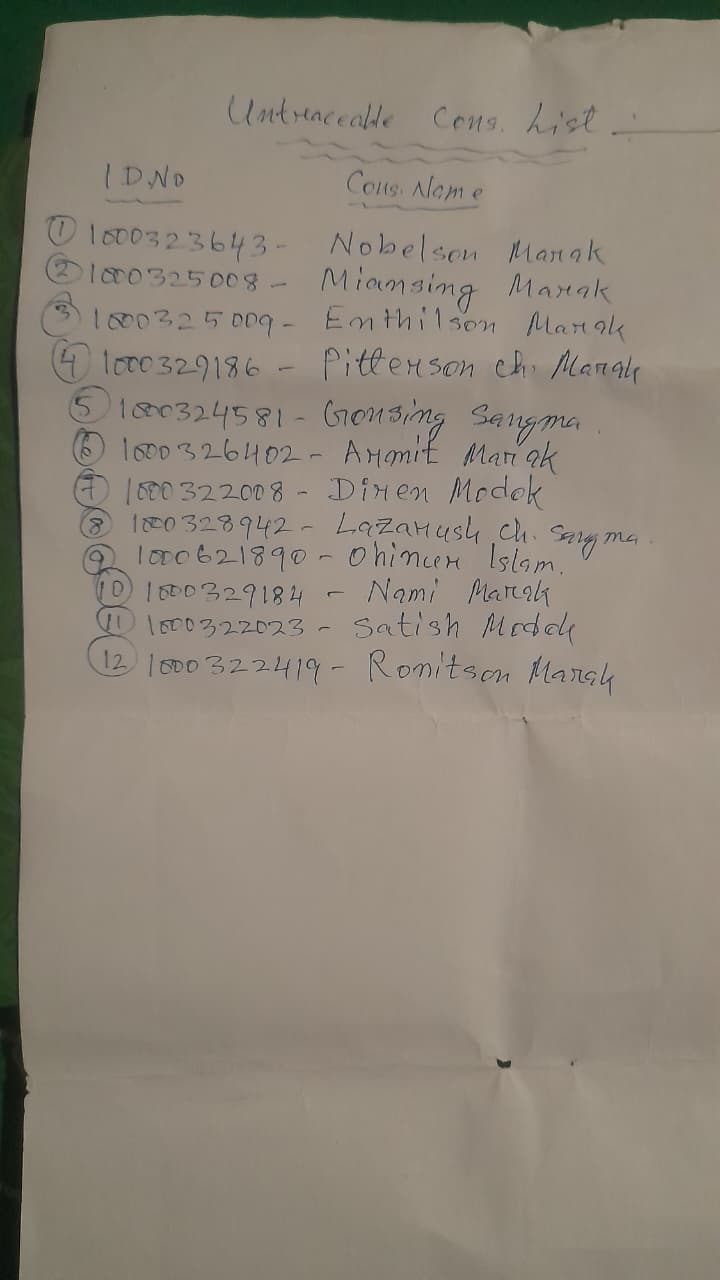 Untraceable Cons. List :
ID.No Cons. Name
① 1000323643 - Nobelson Marak
② 1000325008 - Miansing Marak
③ 1000325009 - Enthilson Marak
④ 1000329186 - Pitterson ch. Marak
⑤ 1000324581 - Gonsing Sangma.
⑥ 1000326402 - Armit Marak
⑦ 1000322008 - Diren Modok
⑧ 1000328942 - Lazarush ch. Sangma.
⑨ 1000621890 - Ohinur Islam.
⑩ 1000329184 - Nami Marak
⑪ 1000322023 - Satish Modok
⑫ 1000322419 - Ronitson Marak